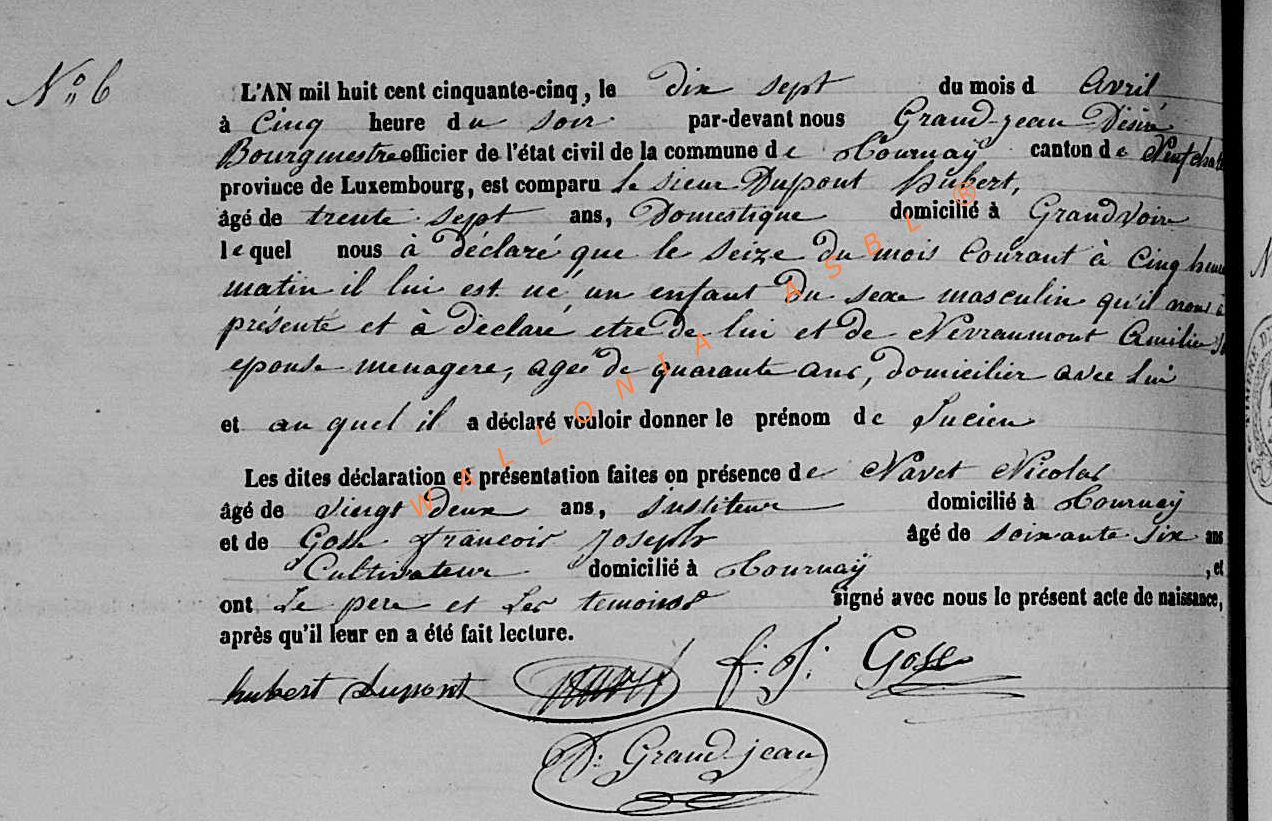 N° 6
L'AN mil huit cent cinquante-cinq, le dix sept du mois d Avril
à Cinq heure du soir par-devant nous Grandjean Désiré
Bourgmestre officier de l'état civil de la commune de Tournaÿ canton de Neufchat
province de Luxembourg, est comparu le sieur Dupont hubert,
âgé de trente sept ans, Domestique domicilié à Grandvoir
lequel nous à déclaré que le seize du mois Courant à Cinq heure
matin il lui est né, un enfant du sexe masculin qu'il nous à
présenté et à déclaré etre de lui et de Nevraumont Amilie
epouse menagere, agée de quarante ans, domicilier avec lui
et au quel il a déclaré vouloir donner le prénom de Lucien
Les dites déclaration et présentation faites en présence de Navet Nicolas
âgé de vingt deux ans, institeur domicilié à Tournaÿ
et de Gosse francois Joseph âgé de soixante six ans
Cultivateur domicilié à Tournaÿ, et
ont Le pere et Les temoins signé avec nous le présent acte de naissance,
après qu'il leur en a été fait lecture.
hubert Dupont f: J: Gosse
D: Grandjean
WALLONIA ASBL ®